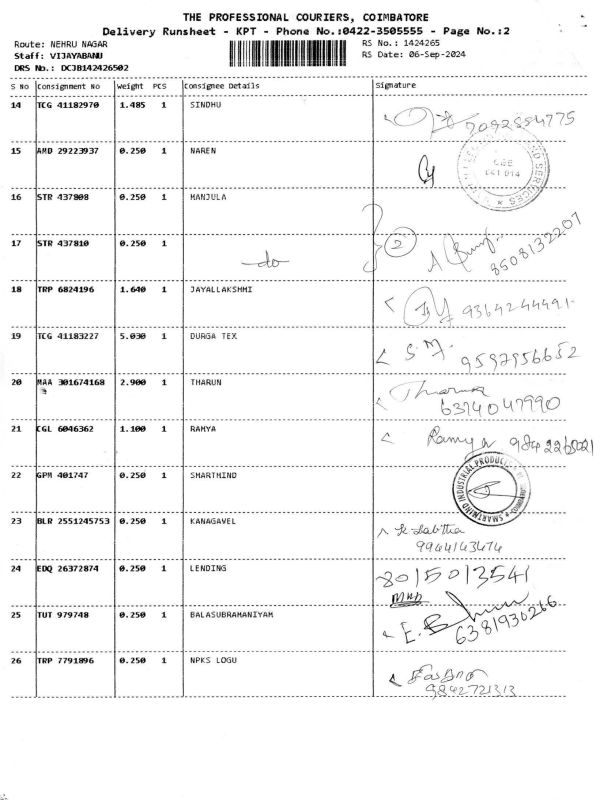 THE PROFESSIONAL COURIERS, COIMBATORE
Delivery Runsheet - KPT - Phone No.:0422-3505555 - Page No.:2
Route: NEHRU NAGAR
RS No.: 1424265
Staff: VIJAYABANU
RS Date: 06-Sep-2024
DRS No.: DCJB142426502
S No Consignment No Weight PCS Consignee Details Signature
14 TCG 41182970 1.485 1 SINDHU
7092884775
15 AMD 29223937 0.250 1 NAREN
CBE
641 014
16 STR 437808 0.250 1 MANJULA
17 STR 437810 0.250 1 do 2
8508132207
18 TRP 6824196 1.640 1 JAYALLAKSHMI
9364244491
19 TCG 41183227 5.030 1 DURGA TEX S.M.
9597956652
20 MAA 301674168 2.900 1 THARUN Tharun
6374047990
21 CGL 6046362 1.100 1 RAMYA Ramya
22 GPM 401747 0.250 1 SMARTMIND
SMARTMIND INDUSTRIAL PRODUCTS
23 BLR 2551245753 0.250 1 KANAGAVEL
9944143474
24 EDQ 26372874 0.250 1 LENDING 8015013541
25 TUT 979748 0.250 1 BALASUBRAMANIYAM
6381930266
26 TRP 7791896 0.250 1 NPKS LOGU
9842721313